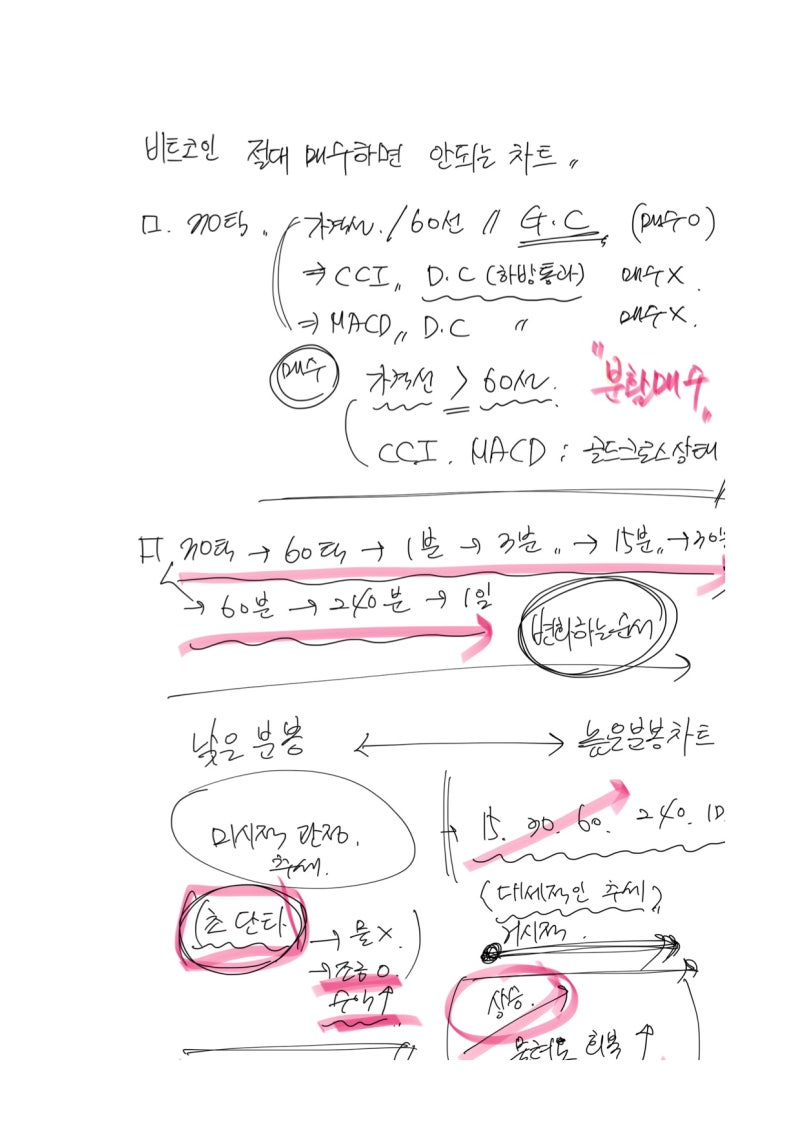 비트코인 절대 매수하면 안되는 차트 〃
ㅁ. 30틱 〃 가격선 / 60선 〃 G.C (매수 O)
⇒ CCI 〃 D.C (하방통과) 매수 X.
⇒ MACD 〃 D.C 〃 매수 X.
매수 가격선 > 60선. "분할매수"
CCI. MACD : 골드크로스상태
30틱 → 60틱 → 1분 → 3분 〃 → 15분 〃 → 30분
→ 60분 → 240분 → 1일 변화하는순서
낮은 분봉 ↔ 높은분봉차트
미시적 관점. → 15. 30. 60. 240. 1D
추세. (대세적인 추세)
초 단타 → 물 X. 거시적.
→ 조금 O. 상승.
수익↑ 물려도 회복 ↑